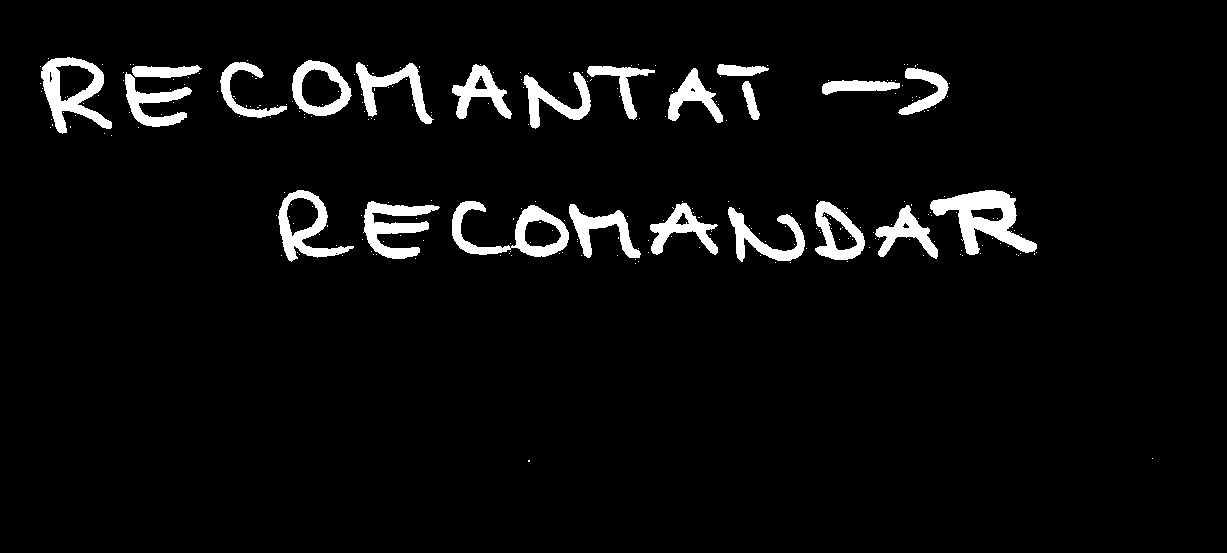 RECOMANTAT →
RECOMANDAR